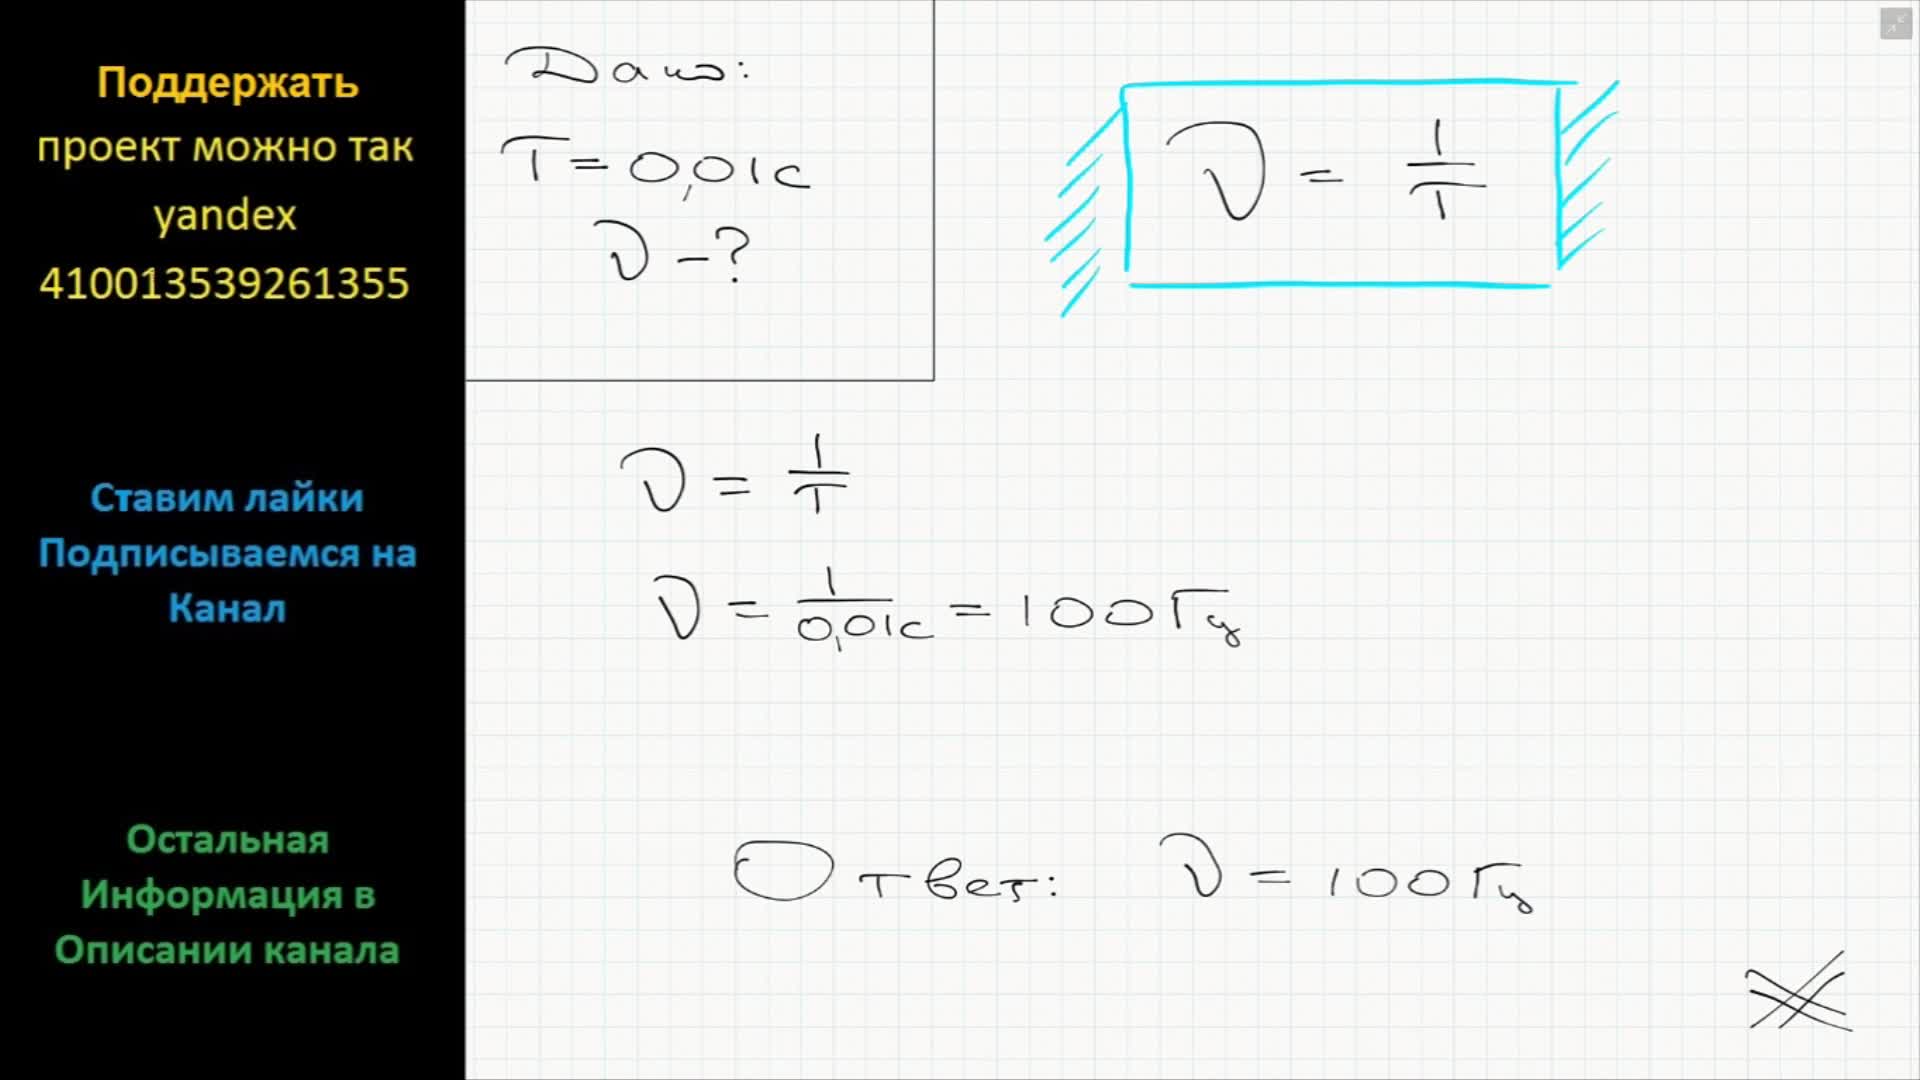 Поддержать
проект можно так
yandex
410013539261355
Ставим лайки
Подписываемся на
Канал
Остальная
Информация в
Описании канала
Дано:
T = 0,01 с
ν - ?
ν = 1/T
ν = 1/T
ν = 1/0,01с = 100 Гц
Ответ: ν = 100 Гц